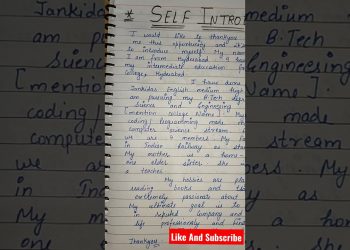 * SELF INTRO
I would like to thankyou
me this opportunity and
to introduce myself. My
I am from Hyderabad. I
my intermediate education
College, Hyderabad.
I have done
Jankidas English medium
am pursuing my B.Tech degr
Science and Engineering
[mention College Name]. My
coding/programming made
computer science stream
we are 4 members. My
in Indian Railway as
My mother is a home-
one elder sister she
a teacher.
My hobbies are
reading books and
extremely passionate about
My ultimate goal is to
in reputed company and
life professionally and
Thankyou
Like And Subscribe
Jankidas
am pu
Scienc
[mention
coding/
compute
we a
in Ind
My m
one
medium
B.Tech
Engineering
Name].
made
stream
My